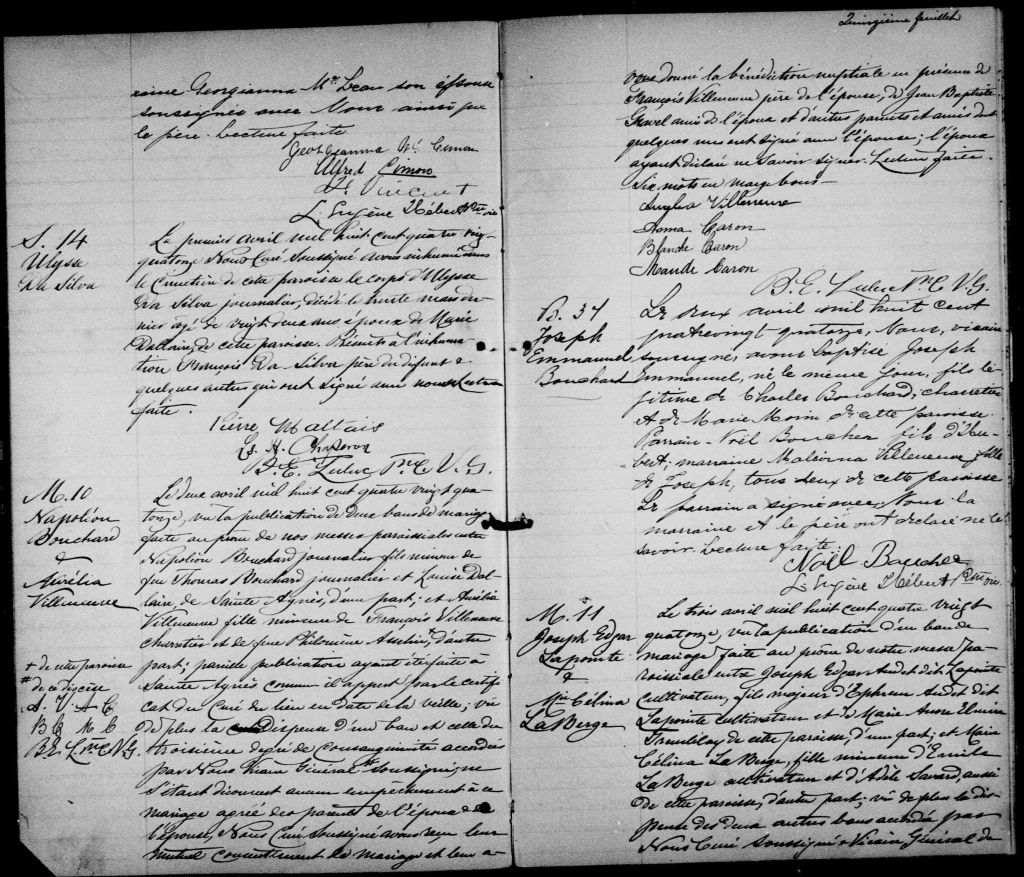 raine Georgianna Mc Lean son épouse
soussignés avec Nous ainsi que
le père. Lecture faite
Georgeanna Mc Cimon
Alfred Cimon
H Vincent
L. Eugène Hébert Ptre vic
S. 14
Ulysse
Da Silva
Le premier avril mil huit cent quatre vingt
quatorze Nous Curé soussigné avons inhumé dans
le Cimetière de cette paroisse le corps d'Ulysse
Da Silva journalier, décédé le trente mars der-
nier agé de vingt deux ans époux de Marie
Dallaire, de cette paroisse. Présents à l'inhuma-
tion François Da Silva père du défunt &
quelques autres qui ont signé avec nous. Lecture
faite.
Pierre Maltais
Ls. H. Chaperon
B. E. Leclerc Ptre C. V. G.
M. 10
Napoléon
Bouchard
&
Aurélia
Villeneuve
Le deux avril mil huit cent quatre vingt qua-
torze, vu la publication de deux bans de mariage
faite au prône de nos messes paroissiales entre
Napoléon Bouchard journalier fils mineur de
feu Thomas Bouchard journalier et Louise Dal-
laire, de Sainte Agnès, d'une part; et Aurélia
Villeneuve fille mineure de François Villeneuve
charretier et de feue Philomène Asselin, d'autre
part; pareille publication ayant été faite à
Sainte Agnès comme il appert par le certifi-
cat du Curé du lieu en date de la veille; vu
de plus la dispense d'un ban et celle du
troisième degré de consanguinité accordées
par Nous Vicaire Général soussigné; ne
s'étant découvert aucun empêchement à ce
mariage agréé des parents de l'époux & de
l'épouse, Nous Curé soussigné avons reçu leur
mutuel consentement de mariage et leur a-
+ de cette paroisse
# de ce diocèse
A. V. A C
B C M C
B.E. L. Ptre C. V. G.
Quinzième feuillet
vons donné la bénédiction nuptiale en présence de
François Villeneuve père de l'épouse, de Jean Baptiste
Gravel ami de l'époux et d'autres parents et amis dont
quelques uns ont signé avec l'épouse; l'époux
ayant déclaré ne savoir signer. Lecture faite.
Six mots en marge bons
Aurglia Villeneuve
Anna Caron
Blanche Caron
Maude Caron
B. E. Leclerc Ptre C V. G.
B. 37
Joseph
Emmanuel
Bouchard
Le deux avril mil huit cent
quatrevingt quatorze, Nous, vicaire
soussigné, avons baptisé Joseph
Emmanuel, né le même jour, fils lé-
gitime de Charles Bouchard, charretier
et de Marie Morin de cette paroisse.
Parrain Noël Boucher fils d'Hu-
bert; marraine Malvina Villeneuve fille
de Joseph, tous deux de cette paroisse
Le parrain a signé avec Nous la
marraine et le père ont déclaré ne le
savoir. Lecture faite
Noël Boucher
L. Eugène Hébert Ptre vic
M. 11
Joseph Edgar
Lapointe
&
Mie Célina
LaBerge
Le trois avril mil huit cent quatre vingt
quatorze, vu la publication d'un ban de
mariage faite au prône de notre messe pa-
roissiale entre Joseph Edgar Audet dit Lapointe
cultivateur, fils majeur d'Ephrem Audet dit
Lapointe cultivateur et de Marie Anne Elmire
Tremblay de cette paroisse, d'une part; et Marie
Célina LaBerge, fille mineure d'Emile
LaBerge cultivateur et d'Adèle Savard, aussi
de cette paroisse, d'autre part; vu de plus la dis-
pense des deux autres bans accordée par
Nous Curé soussigné & Vicaire Général de